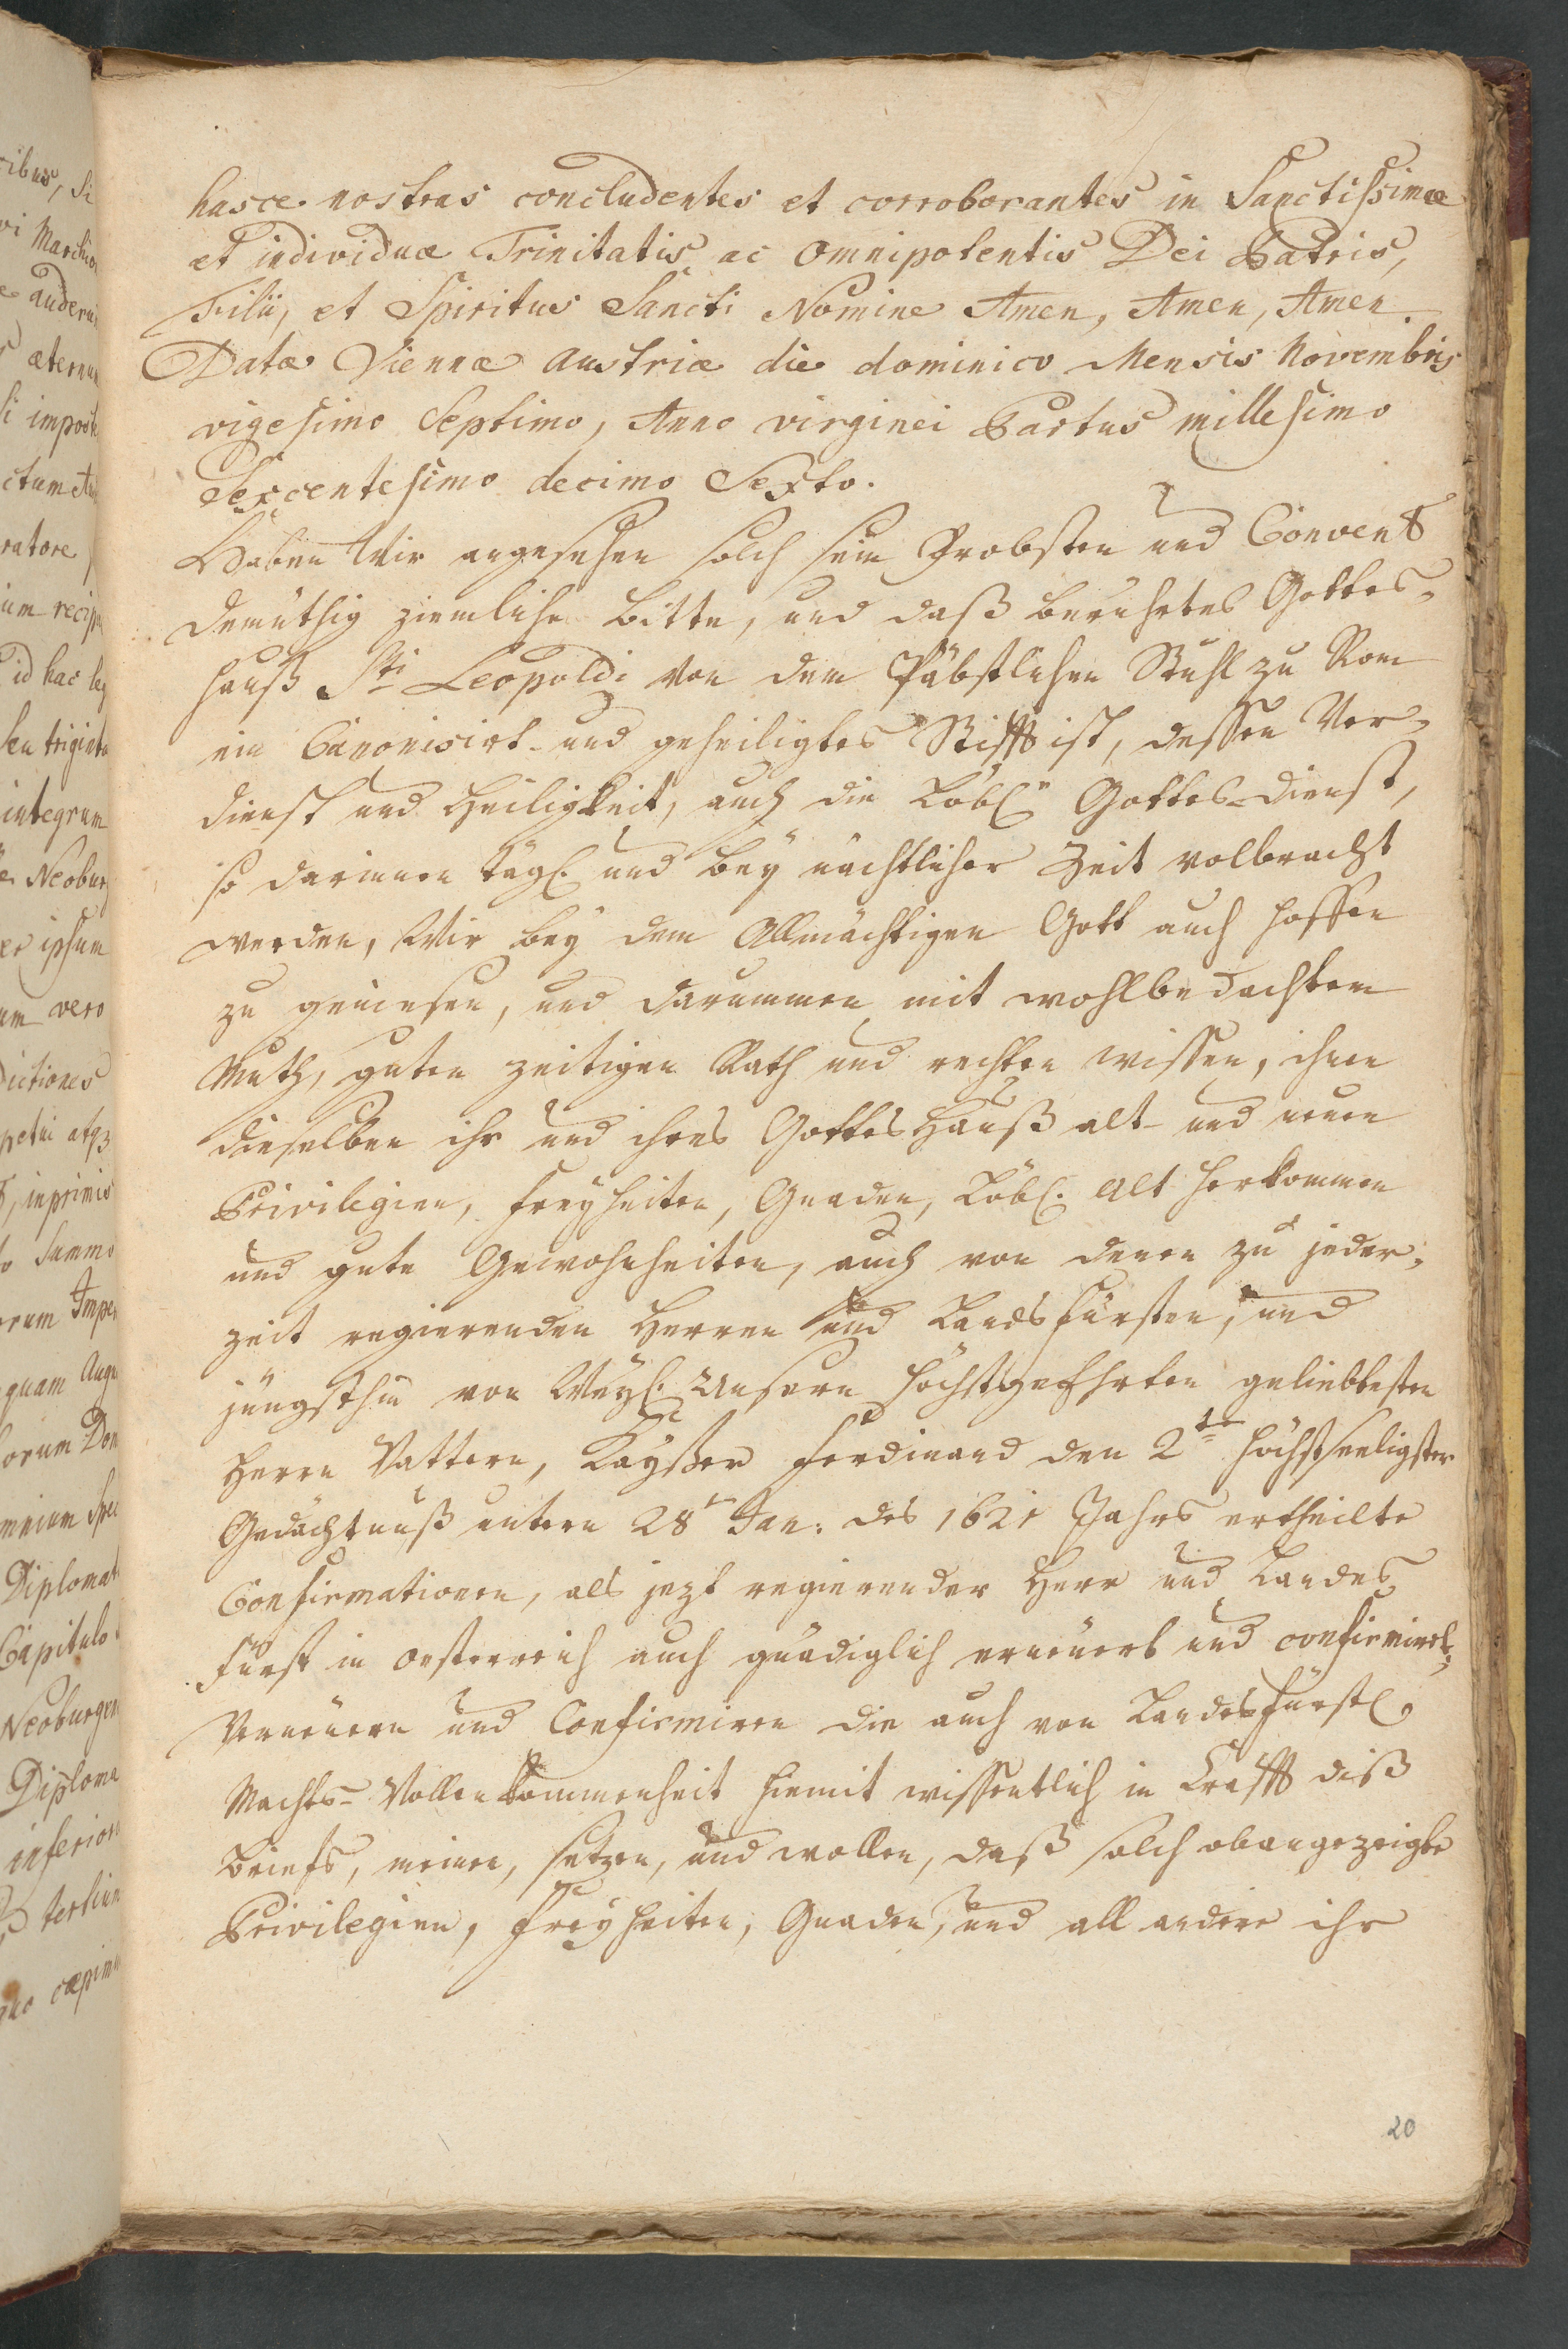 hasce nostras concludentes et corroborantes in Sanctissimæ
et individuæ Trinitatis ac omnipotentis Dei Patris,
Filii, et Spiritus Sancti Nomine Amen, Amen, Amen.
Datæ Viennæ Austriæ die dominico Mensis Novembris
vigesimo Septimo, Anno virginei Partus millesimo
Sexcentesimo decimo Sexto.
Haben Wir angesehen solch sein Probsten und Convent
demüthig ziemliche Bitte, und daß berührtes Gottes-
hauß Sti Leopoldi von dem Päbstlichen Stuhl zu Rom
ein Canonisirt- und geheiligtes Stifft ist, dessen Ver-
dienst und Heiligkeit, auch die Löbl. Gottes-dienst,
so darinnen tägl. und bey nächtlicher Zeit volbracht
werden, Wir bey dem Allmächtigen Gott auch hoffen
zu geniesen, und darummen mit wohlbedachtem
Muth, guten zeitigen Rath und rechten wissen, ihnen
dieselben ihr und ihres Gottes Hauß alt- und neuen
Privilegien, Freyheiten, Gnaden, Löbl. alt herkommen
und gute Gewohnheiten, auch von denen zu jeder-
zeit regierenden Herren und Landsfürsten, und
jüngsthin von Weyl. Unsern höchstgeehrten geliebtesten
Herrn Vattern, Kayßer Ferdinand den 2ten höchstseeligster
Gedächtnuß untern 28ten Jan: des 1621 Jahrs ertheilte
Confirmationen, als jezt regierender Herr und Landes
Fürst in Oesterreich auch gnädiglich erneuert und confirmirt,
Verneuern und Confirmiren die auch von Landesfürstl.
Machts-Vollenkommenheit hiemit wissentlich in Crafft diß
Briefs, meinen, setzen, und wollen, daß solch obangezeigte
Privilegien, Freyheiten, Gnaden, und all andere ihr
20